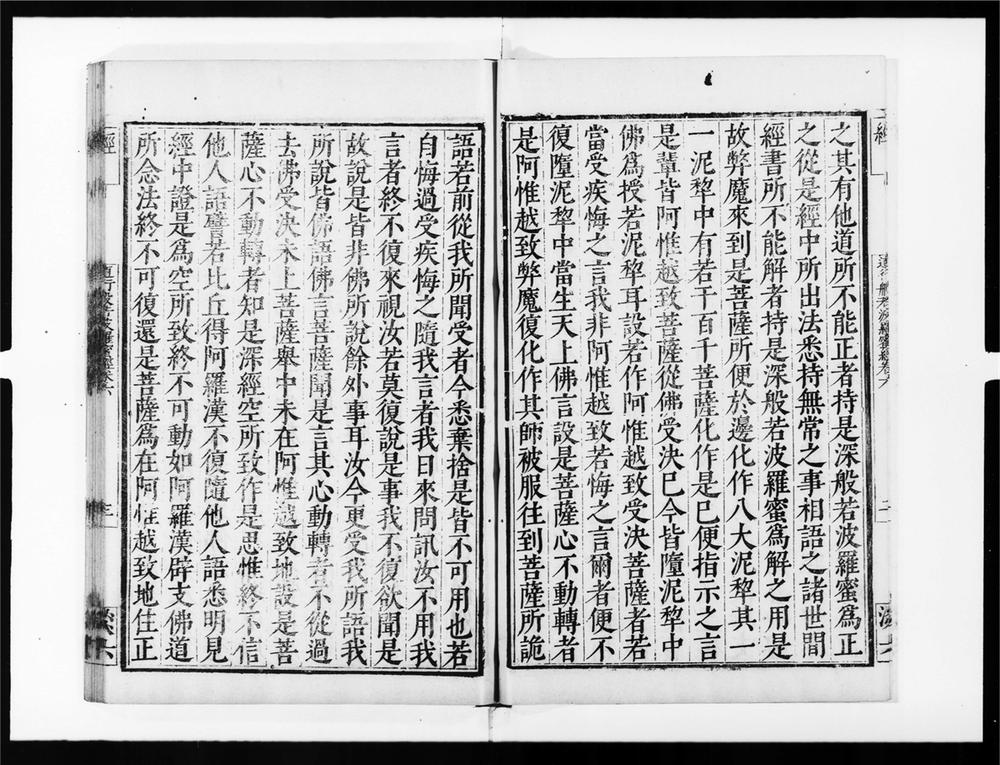 之其有他道所不能正者持是深般若波羅蜜爲正
之從是經中所出法悉持無常之事相語之諸世間
經書所不能解者持是深般若波羅蜜爲解之用是
故弊魔來到是菩薩所便於邊化作八大泥犂其一
一泥犂中有若干百千菩薩化作是已便指示之言
是輩皆阿惟越致菩薩從佛受決已今皆墮泥犂中
佛爲授若泥犂耳設若作阿惟越致受決菩薩者若
當受疾悔之言我非阿惟越致若悔之言爾者便不
復墮泥犂中當生天上佛言設是菩薩心不動轉者
是阿惟越致弊魔復化作其師被服往到菩薩所詭
語若前從我所聞受者今悉棄捨是皆不可用也若
自悔過受疾悔之隨我言者我日來問訊汝不用我
言者終不復來視汝若莫復說是事我不復欲聞是
故說是皆非佛所說餘外事耳汝今更受我所語我
所說皆佛語佛言菩薩聞是言其心動轉者不從過
去佛受決未上菩薩舉中未在阿惟越致地設是菩
薩心不動轉者知是深經空所致作是思惟終不信
他人語譬若比丘得阿羅漢不復隨他人語悉明見
經中證是爲空所致終不可動如阿羅漢辟支佛道
所念法終不可復還是菩薩爲在阿惟越致地住正